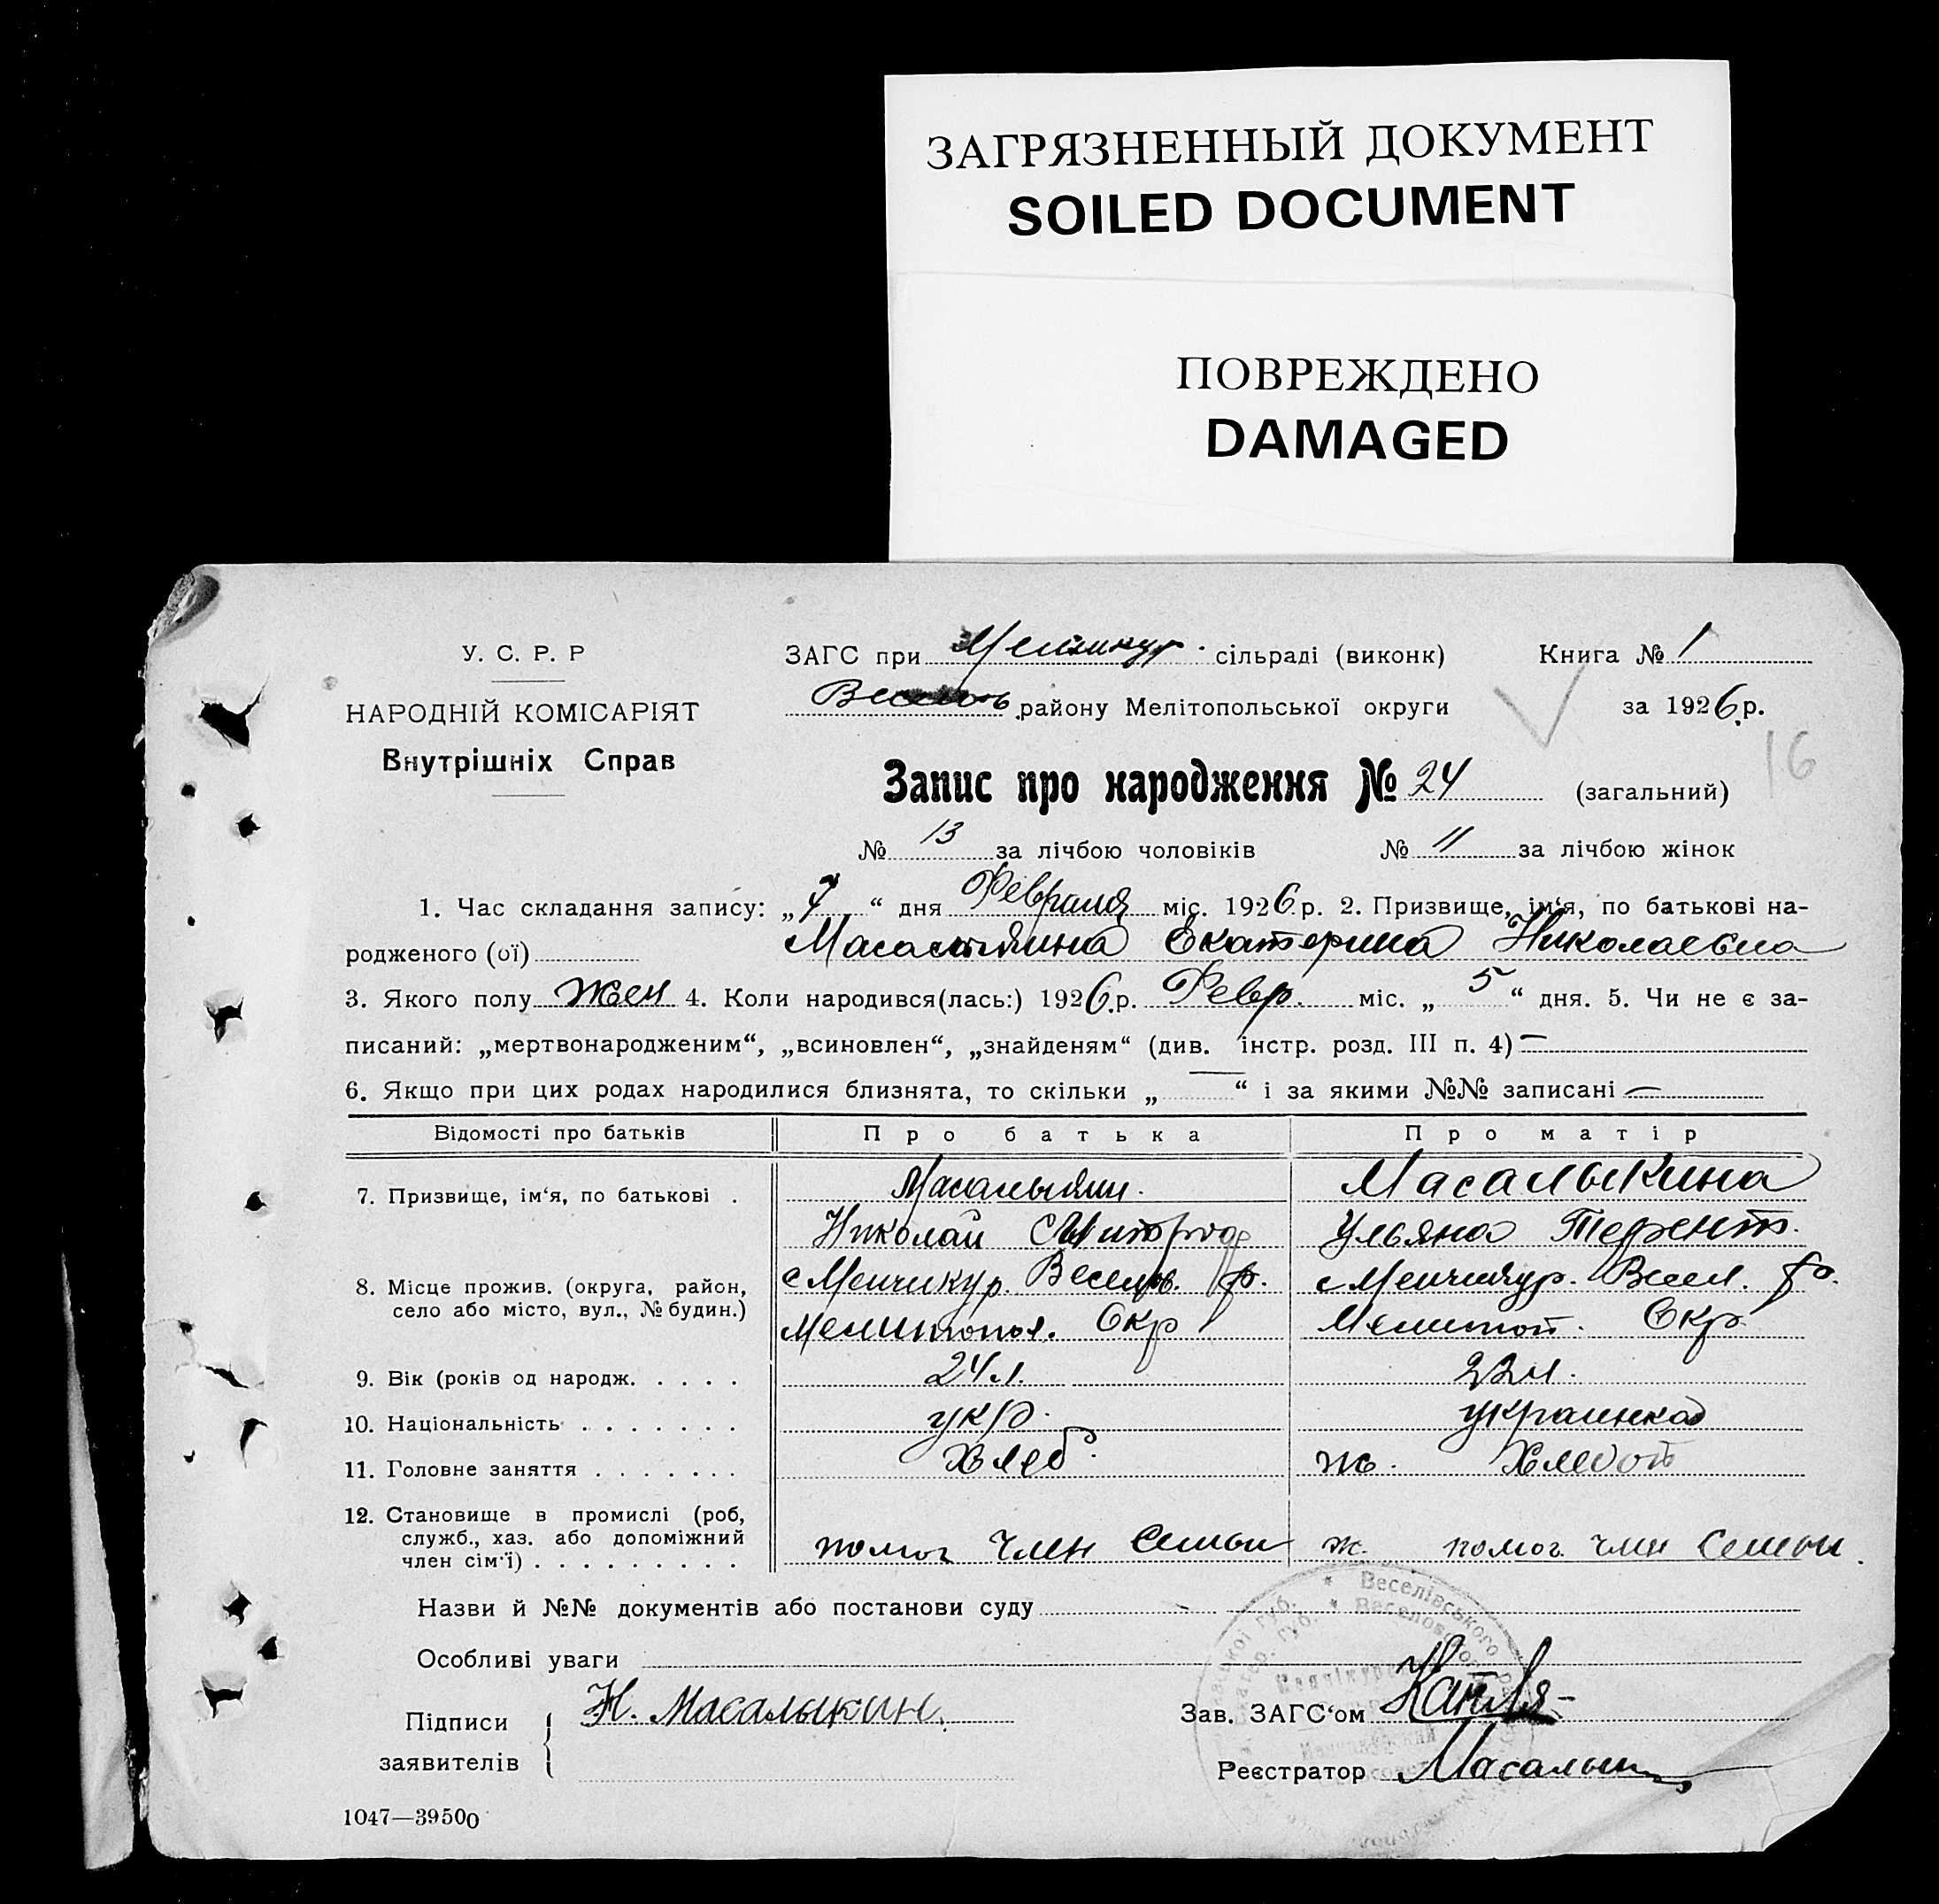 ЗАГРЯЗНЕННЫЙ ДОКУМЕНТ
SOILED DOCUMENT
ПОВРЕЖДЕНО
DAMAGED
У. С. Р. Р
НАРОДНІЙ КОМІСАРІЯТ
Внутрішніх Справ
ЗАГС при сільраді (виконк) Книга № 1
Веселов. району Мелітопольської округи за 1926 р.
16
Запис про народження № 24 (загальний)
№ 13 за лічбою чоловіків № 11 за лічбою жінок
1. Час складання запису: „7“ дня Февраля міс. 1926 р. 2. Призвище, ім‘я, по батькові на-
родженого (ої) Масалыкина Екатерина Николаевна
3. Якого полу жен 4. Коли народився(лась:) 1926.р. Февр. міс. „5“ дня. 5. Чи не є за-
писаний: „мертвонародженим“, „всиновлен“, „знайденям“ (див. інстр. розд. III п. 4) —
6. Якщо при цих родах народилися близнята, то скільки „—“ і за якими №№ записані —
Відомості про батьків Про батька Про матір
7. Призвище, ім‘я, по батькові . Масалыкин. Масалыкина
Николай Ульяна Терент.
8. Місце прожив. (округа, район, с Менчикур. Веселов. р. с Менчикур. Весел. р.
село або місто, вул., № будин.)
Мелитопол. Окр Мелитоп. Окр
9. Вік (років од народж. . . . . 24 л. 22 л.
10. Національність . . . . . . . укр. украинка
11. Головне заняття . . . . . . . Хлеб. ж. Хлебоп
12. Становище в промислі (роб,
служб., хаз. або допоміжний
член сім‘ї) . . . . . . . . . помог член семьи ж. помог. член семьи.
Назви й №№ документів або постанови суду
Особливі уваги
Підписи Н. Масалыкин. Зав. ЗАГС‘ом
заявителів Реєстратор Масалык
Веселівського
1047—39500